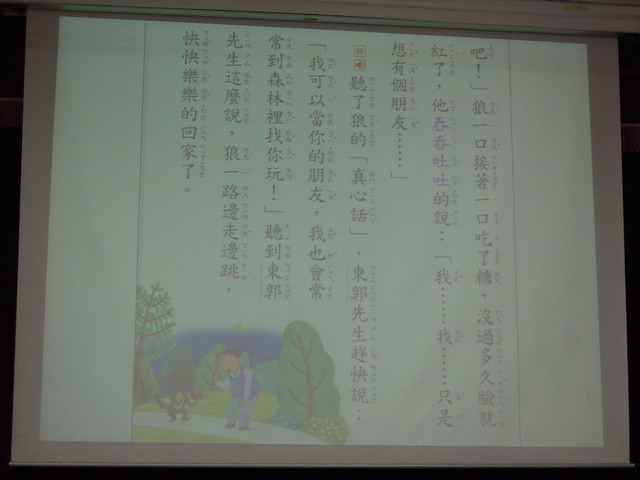 吧！」狼一口接著一口吃了糖，沒過多久臉就
紅了，他吞吞吐吐的說：「我……我……只是
想有個朋友……」
聽了狼的「真心話」，東郭先生趕快說：
「我可以當你的朋友，我也會常
常到森林裡找你玩！」聽到東郭
先生這麼說，狼一路邊走邊跳，
快快樂樂的回家了。